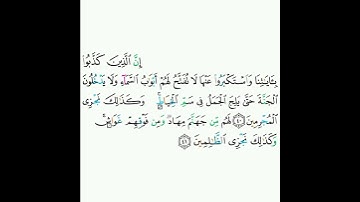 إِنَّ ٱلَّذِينَ كَذَّبُوا۟
بِـَٔايَـٰتِنَا وَٱسْتَكْبَرُوا۟ عَنْهَا لَا تُفَتَّحُ لَهُمْ أَبْوَٰبُ ٱلسَّمَآءِ وَلَا يَدْخُلُونَ
ٱلْجَنَّةَ حَتَّىٰ يَلِجَ ٱلْجَمَلُ فِى سَمِّ ٱلْخِيَاطِ ۚ وَكَذَٰلِكَ نَجْزِى
ٱلْمُجْرِمِينَ ٤٠ لَهُم مِّن جَهَنَّمَ مِهَادٌ وَمِن فَوْقِهِمْ غَوَاشٍ ۚ
وَكَذَٰلِكَ نَجْزِى ٱلظَّـٰلِمِينَ ٤١